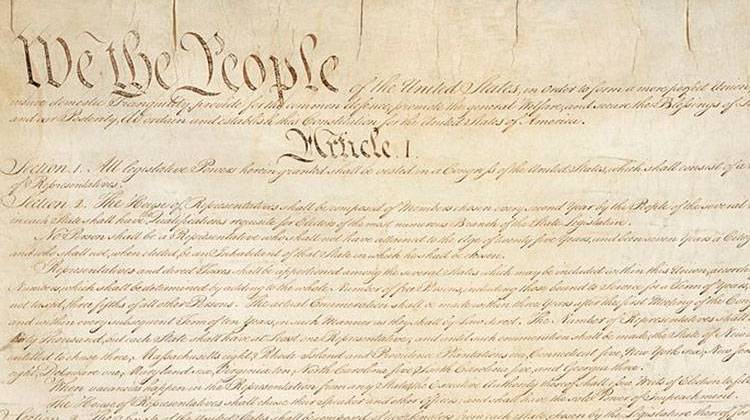 We the People of the United States, in order to form a more perfect Union,
insure domestic Tranquility, provide for the common defence, promote the general Welfare, and secure the Blessings of
and our Posterity, do ordain and establish this Constitution for the United States of America.
Article. I.
Section. 1. All legislative Powers herein granted shall be vested in a Congress of the United States, which shall consist of a
of Representatives.
Section. 2. The House of Representatives shall be composed of Members chosen every second Year by the People of the several
in each State shall have Qualifications requisite for Electors of the most numerous Branch of the State Legislature.
No Person shall be a Representative who shall not have attained to the Age of twenty five Years, and been seven Years a
and who shall not, when elected, be an Inhabitant of that State in which he shall be chosen.
Representatives and direct Taxes shall be apportioned among the several States which may be included within this Union, according
Numbers, which shall be determined by adding to the whole Number of free Persons, including those bound to Service for a Term of Years,
not taxed, three fifths of all other Persons. The actual Enumeration shall be made within three Years after the first Meeting of the
and within every subsequent Term of ten Years, in such Manner as they shall by Law direct. The Number of Representatives shall
thirty Thousand, but each State shall have at Least one Representative; and until such enumeration shall be made, the State of New
entitled to chuse three, Massachusetts eight, Rhode Island and Providence Plantations one, Connecticut five, New York six, New
eight, Delaware one, Maryland six, Virginia ten, North Carolina five, South Carolina five, and Georgia three.
When vacancies happen in the Representation from any State, the Executive Authority thereof shall issue Writs of Election to
The House of Representatives shall chuse their Speaker and other Officers; and shall have the sole Power of Impeachment.